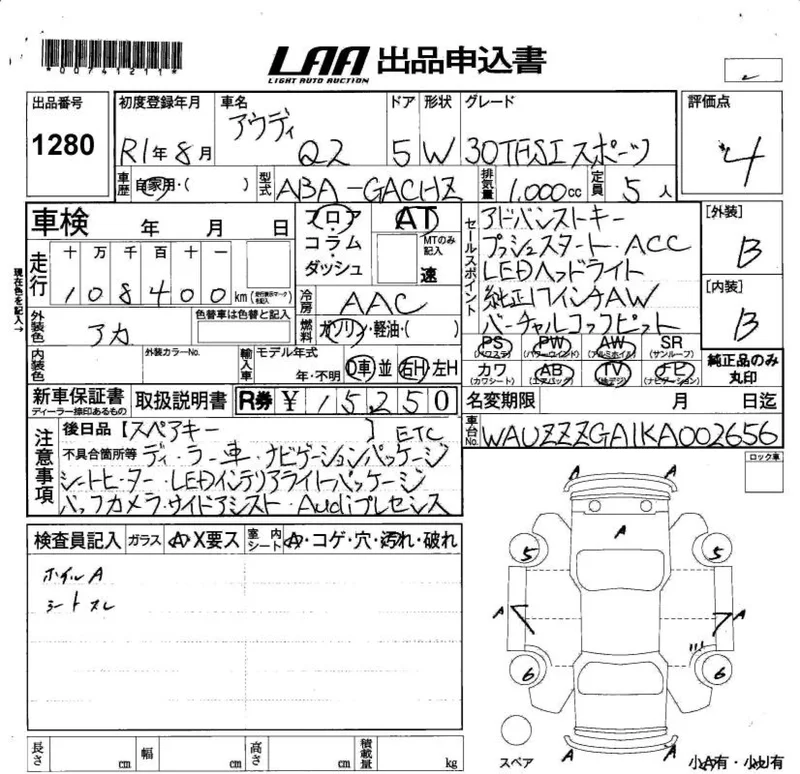 *00741211*
LAA 出品申込書
LIGHT AUTO AUCTION
出品番号 1280
初度登録年月 R1年8月
車名 アウディ Q2
ドア 5
形状 W
グレード 30TFSIスポーツ
評価点 4
車歴 自家用・( )
型式 ABA-GACHZ
排気量 1,000cc
定員 5人
車検 年 月 日
フロア
コラム・
ダッシュ
AT
MTのみ記入
速
セールスポイント
アドバンストキー
プッシュスタート・ACC
LEDヘッドライト
純正17インチAW
バーチャルコックピット
[外装] B
[内装] B
現在色を記入→
走行 十 万 千 百 十 一
108400 km
冷房 AAC
燃料 ガソリン・軽油・( )
外装色 アカ
色替車は色替と記入
内装色
外装カラーNo.
輸入車 モデル年式
年・不明
D車 並 右H・左H
PS (パワステ)
PW (パワーウインド)
AW (アルミホイル)
SR (サンルーフ)
カワ (カワシート)
AB (エアバッグ)
TV (地デジ)
ナビ (ナビゲーション)
純正品のみ丸印
新車保証書
ディーラー捺印あるもの
取扱説明書
R券 ¥15250
名変期限 月 日迄
車台No. WAUZZZGA1KA002656
注意事項
後日品【スペアキー 】ETC
不具合箇所等 ディーラー車・ナビゲーションパッケージ
シートヒーター・LEDインテリアライトパッケージ
バックカメラ・サイドアシスト・Audiプレセンス
ロック車
検査員記入 ガラス A・X要ス 室内シート A・コゲ・穴・汚れ・破れ
ホイルA
シートスレ
A A
A
5 5
A A
6 6
A A
スペア
小A有・小U有
長さ cm 幅 cm 高さ cm 積載量 kg